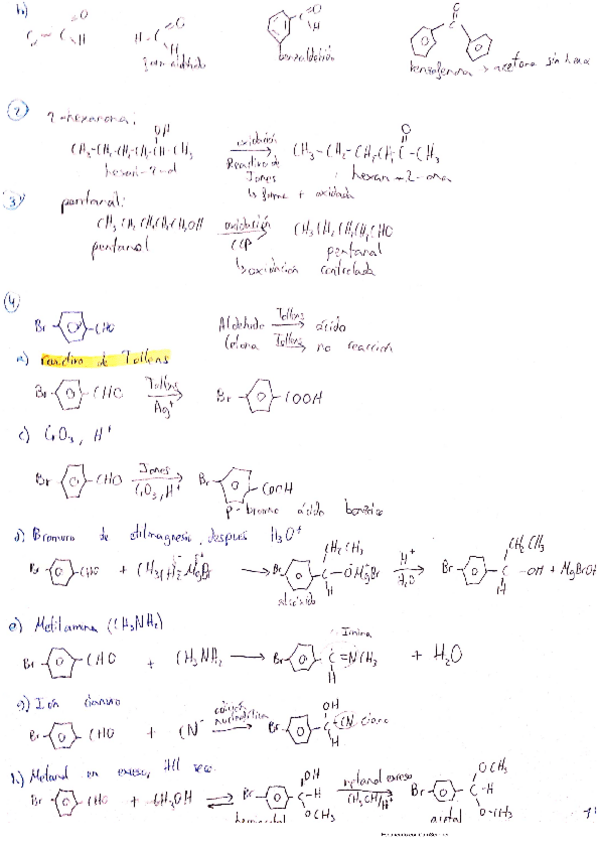 b)
formaldehido
benzaldehido
benzofenona → acetona sin
2
2-hexanona:
OH
CH3-CH2-CH2-CH2-CH-CH3
oxidación
Reactivo de Jones
O
CH3-CH2-CH2-CH2-C-CH3
hexan-2-ol
hexan-2-ona
3
pentanal:
CH3CH2CH2CH2CH2OH
oxidación
CH3CH2CH2CH2CHO
pentanol
pentanal
oxidación controlada
4
Br CHO
Aldehido Tollens ácido
Cetona Tollens no reacción
a) reactivo de Tollens
Br CHO Tollens Ag+ Br COOH
c) CrO3, H+
Br CHO Jones CrO3, H+ Br COOH
p-bromo ácido benzoico
d) Bromuro de etilmagnesio, después H3O+
CH2CH3
CH2CH3
Br CHO + Br C OMgBr H+ H2O Br C -OH + MgBrOH
H
e) Metilamina (CH3NH2)
Imina
Br CHO + CH3NH2 Br C =NCH3 + H2O
H
g) Ion cianuro
Br CHO + CN- adición nucleofílica Br OH C CN ciano
H
h) Metanol en exceso, HCl seco
Br CHO + CH3OH Br OH C -H OCH3 metanol exceso CH3OH/H+ Br OCH3 C -H O-CH3
hemiacetal
acetal